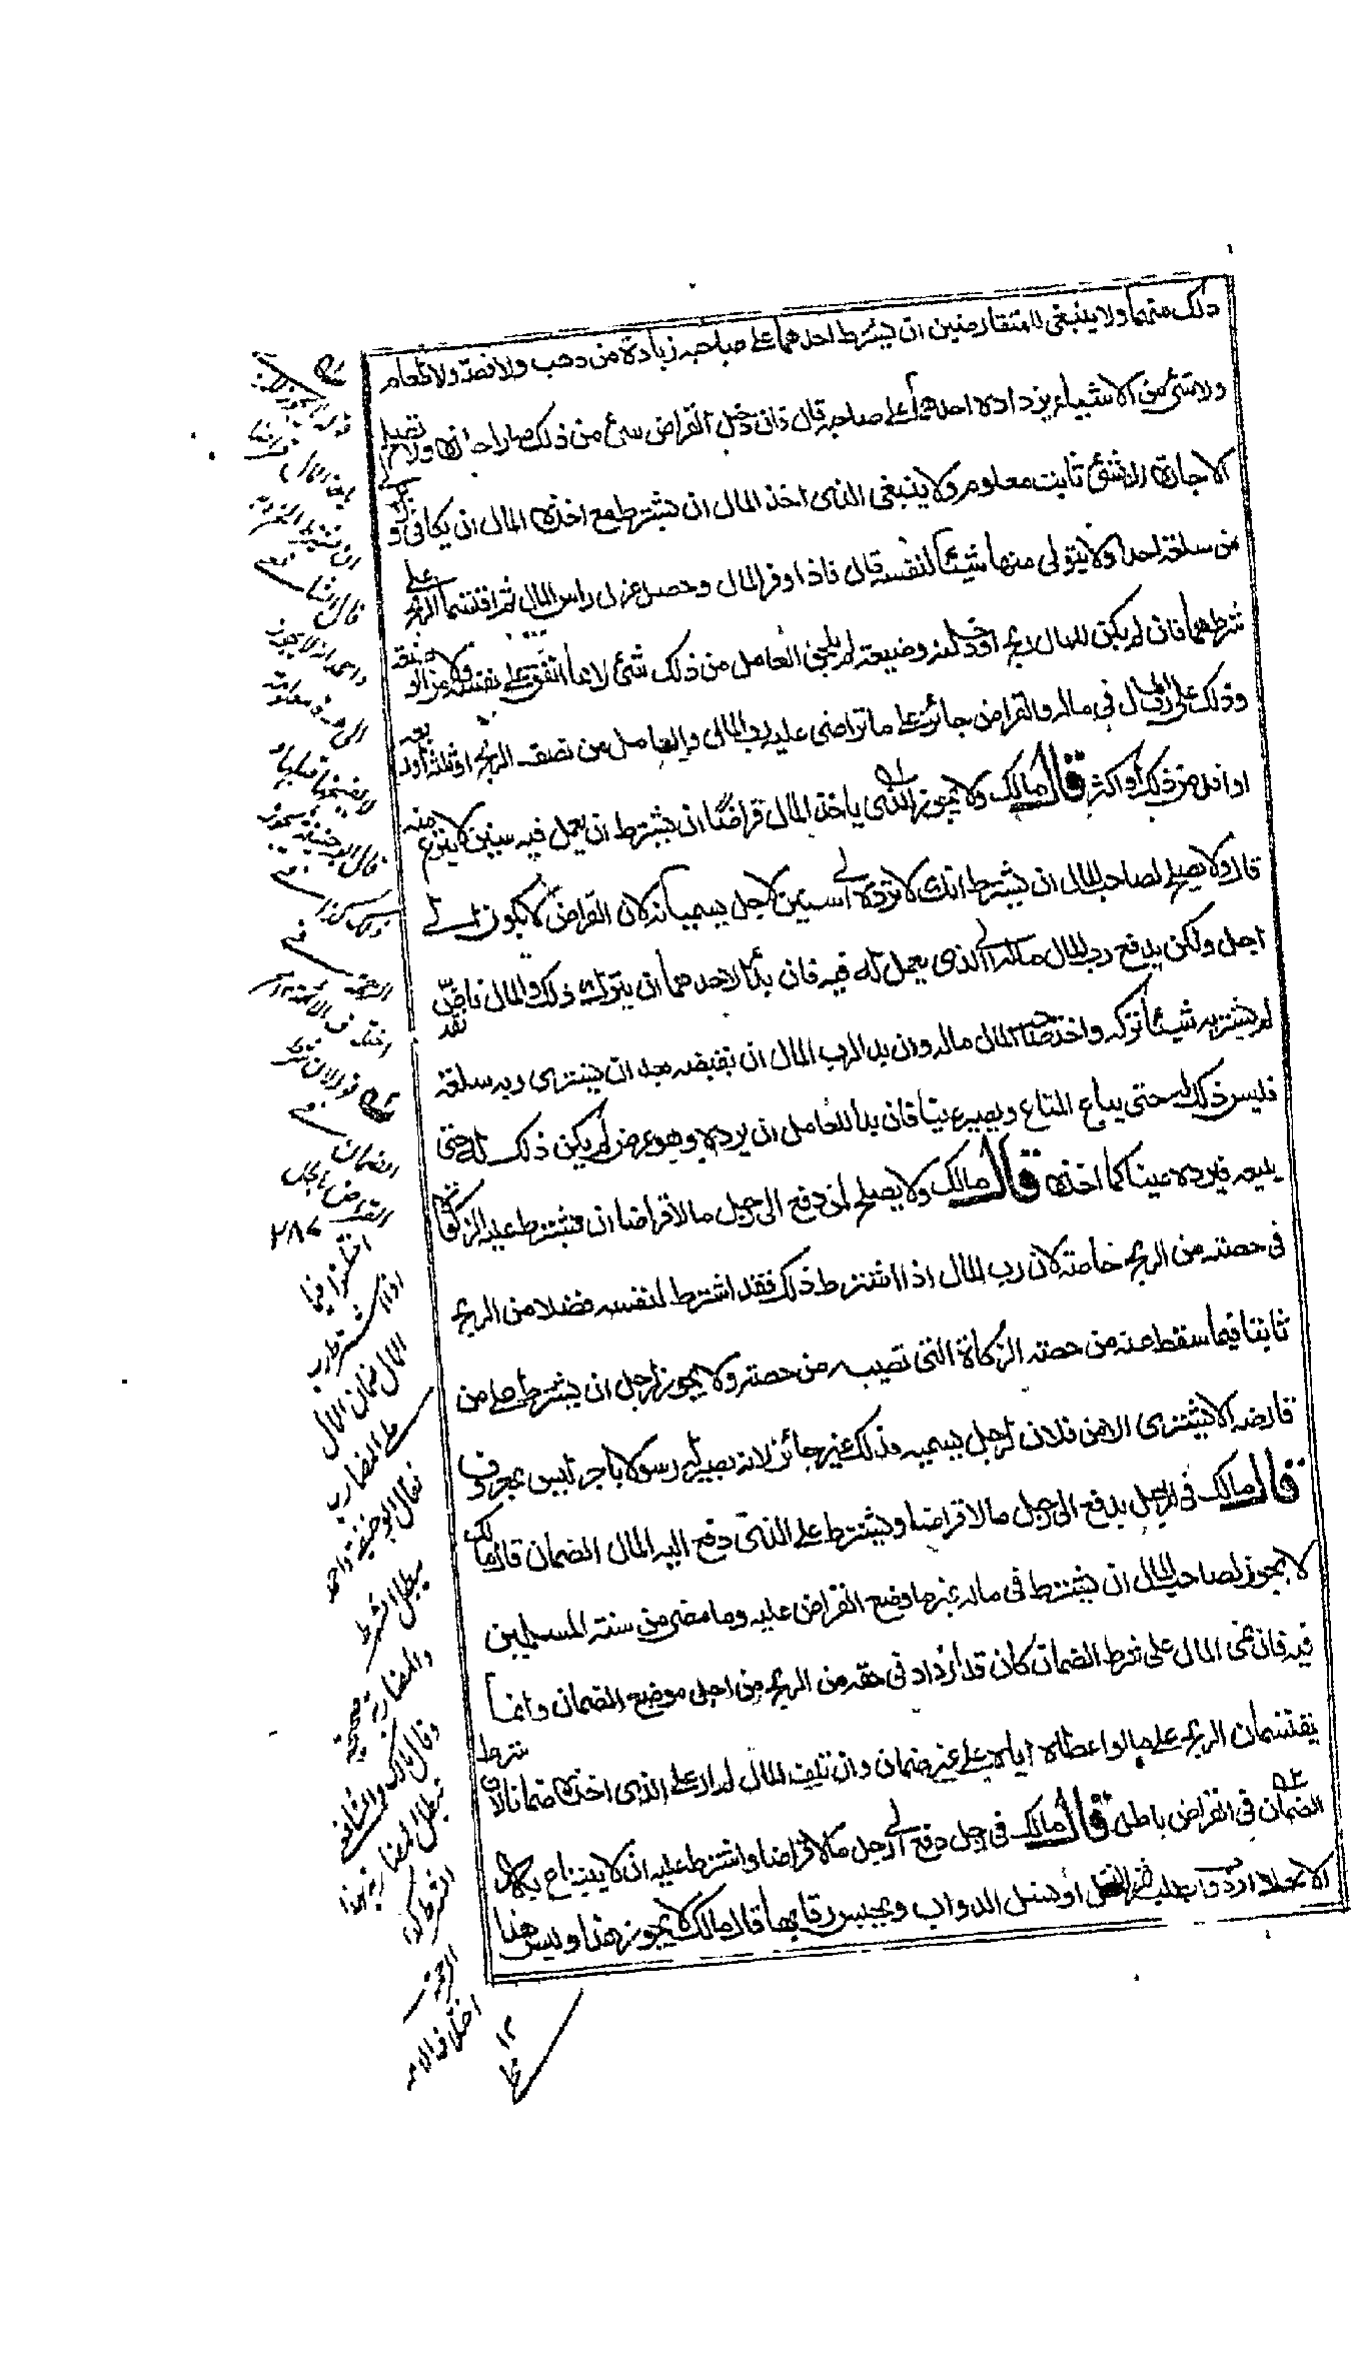 ذلك منهما ولا ينبغي للمتقارضين ان يشترط احدهما على صاحبه زيادة من ذهب ولا فضة ولا طعام
ولا شئ من الاشياء يزداده احدهما على صاحبه قال فان دخل القراض شئ من ذلك صار اجارة ولا تصلح
الاجارة الا بشئ ثابت معلوم ولا ينبغي للذى اخذ المال ان يشترط مع اخذه المال ان يكافى و
من سلعته احدا ولا يتولى منها شيئا لنفسه قال فاذا وفر المال وحصل عزل راس المال ثم اقتسما الربح على
شرطهما فان لم يكن للمال ربح او دخلته وضيعة لم يلحق العامل من ذلك شئ لا مما انفق على نفسه ولا من الوضيعة
وذلك على رب المال في ماله والقراض جائز على ما تراضى عليه رب المال والعامل من نصف الربح او ثلثه او ربعه
او اقل من ذلك او اكثر قال مالك ولا يجوز للذى ياخذ المال قراضا ان يشترط ان يعمل فيه سنين لا ينزع منه
قال ولا يصلح لصاحب المال ان يشترط انك لا ترده الى سنين لاجل يسميانه لان القراض لا يكون الى
اجل ولكن يدفع رب المال ماله الى الذى يعمل له فيه فان بدا لاحدهما ان يترك ذلك والمال ناض
لم يشتر به شيئا تركه واخذ صاحب المال ماله وان بدا لرب المال ان يقبضه بعد ان يشترى به سلعة
فليس ذلك له حتى يباع المتاع ويصير عينا فان بدا للعامل ان يرده وهو عرض لم يكن ذلك له حتى
يبيعه فيرده عينا كما اخذه قال مالك ولا يصلح لمن دفع الى رجل مالا قراضا ان يشترط عليه الزكوة
فى حصته من الربح خاصة لان رب المال اذا اشترط ذلك فقد اشترط لنفسه فضلا من الربح
ثابتا فيما سقط عنه من حصة الزكاة التى تصيبه من حصته ولا يجوز لرجل ان يشترط على من
قارضه الا يشترى الا من فلان لرجل يسميه وذلك غير جائز لانه يصير له رسولا باجر ليس بمعروف
قال مالك فى الرجل يدفع الى رجل مالا قراضا ويشترط على الذى دفع اليه المال الضمان قال مالك
لا يجوز لصاحب المال ان يشترط فى ماله غير ما وضع القراض عليه وما مضى من سنة المسلمين
فيه فان نمى المال على شرط الضمان كان قد ازداد فى حقه من الربح من اجل موضع الضمان وانما
يقتسمان الربح على ما لو اعطاه اياه على غير ضمان وان تلف المال لم ار على الذى اخذه ضمانا لان شرط
الضمان فى القراض باطل قال مالك فى رجل دفع الى رجل مالا قراضا واشترط عليه ان لا يبتاع به
الا نخلا او دواب يطلب ثمر النخل او نسل الدواب ويحبس رقابها قال مالك لا يجوز هذا وليس هذا
ان يشترط
قال الشافعى
قال ابو حنيفة يجوز
الرحمة فى
اختلاف الائمة
قوله لان شرط
الضمان فى
القراض باطل
٢٨٧
اختلفوا فيما
اذا اشترط رب
المال ضمان المال
على المضارب
فقال ابو حنيفة واحمد
يبطل الشرط
والمضاربة صحيحة
وقال مالك والشافعى
تبطل المضاربة بهذا
الشرط كذا
الرحمة
اختلاف الامة
١٢